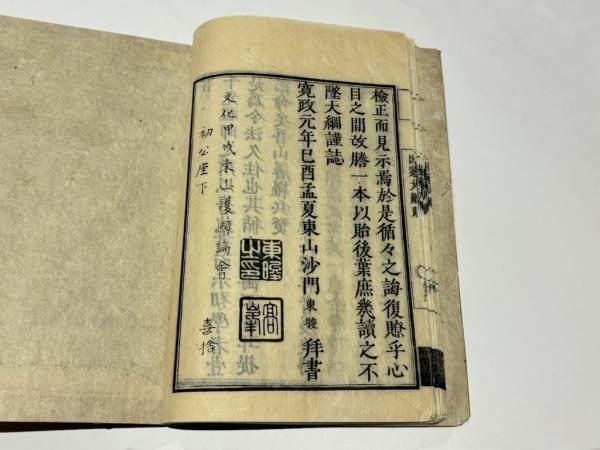 檢正而見示焉於是循々之誨復瞭乎心
目之間故謄一本以貽後葉庶幾讀之不
墜大綱謹誌
寛政元年巳酉孟夏東山沙門東晙拜書
文化甲戌東山護國論會
初公座下
喜捨